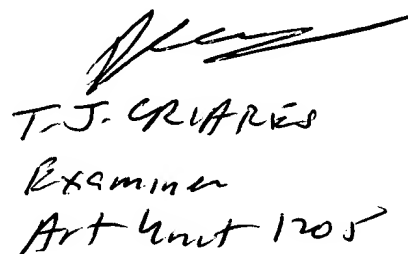 T.J. CRIARES
Examiner
Art Unit 1205